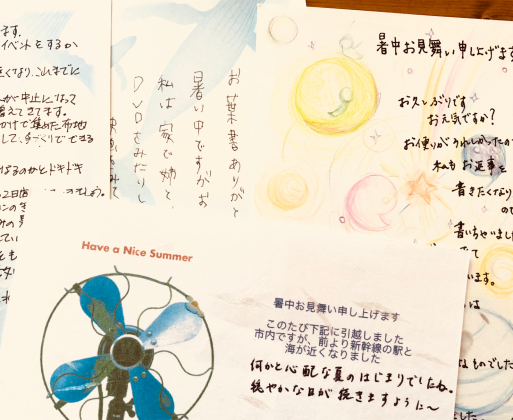 ます。
イベントをするか
くなり、これまでに
が中止になって
増えてきます。
かけで集めた布地
して、手づくりできる
なるのかとドキドキ
お葉書ありがと
暑い中ですがお
私は家で姉と、
DVDをみたりし
暑中お見舞い申し上げます
お久しぶりです
お元気ですか?
お便りがうれしかったか
私もお返事を
書きたくなり
書いちゃいまし
て
います。
は
なものでした
した
Have a Nice Summer
暑中お見舞い申し上げます
このたび下記に引越しました
市内ですが、前より新幹線の駅と
海が近くなりました
何かと心配な夏のはじまりでしたね。
穏やかな日が続きますように〜